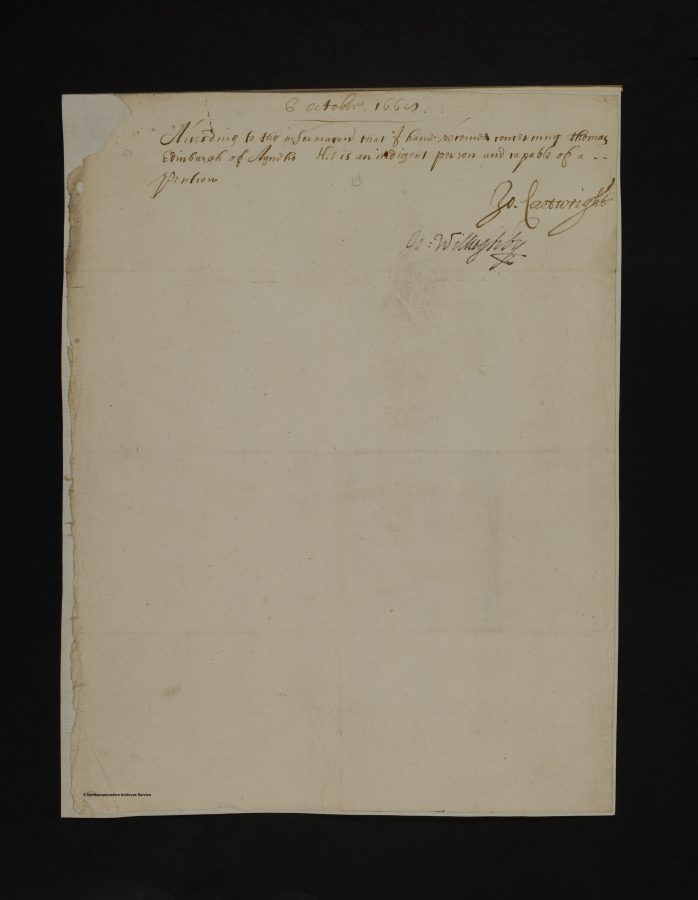 6 October 166
According to the informacon that I haue receiued concerning thomas
Edinburgh of Ayneho Hee is an indigent person and capable of a - -
Pention
Jo. Cartwright
Willoghby
© Northamptonshire Archives Service